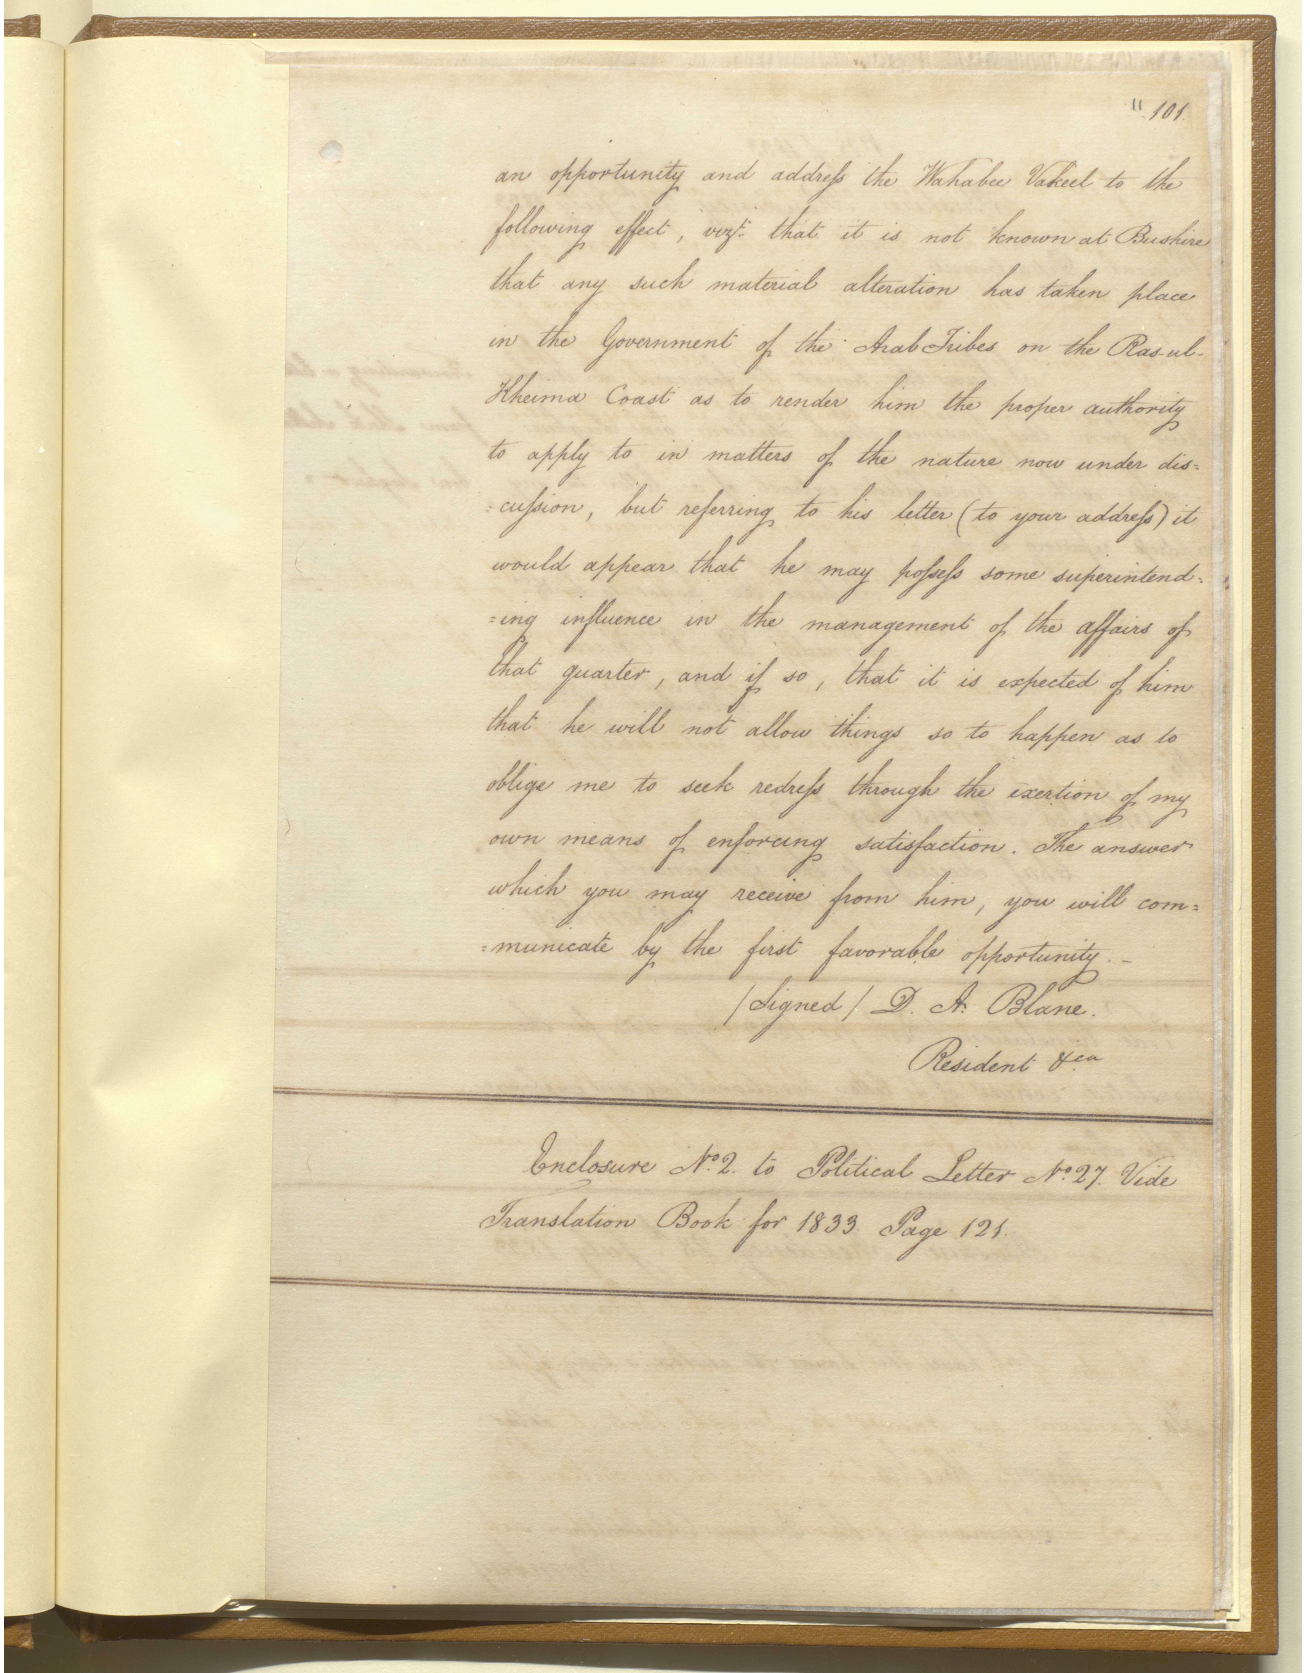 " 101.
an opportunity and address the Wahabee Vakeel to the
following effect, vizt. that it is not known at Bushire
that any such material alteration has taken place
in the Government of the Arab Tribes on the Ras-ul-
Kheima Coast as to render him the proper authority
to apply to in matters of the nature now under dis=
=cussion, but referring to his letter (to your address) it
would appear that he may possess some superintend=
=ing influence in the management of the affairs of
that quarter, and if so, that it is expected of him
that he will not allow things so to happen as to
oblige me to seek redress through the exertion of my
own means of enforcing satisfaction. The answer
which you may receive from him, you will com=
=municate by the first favorable opportunity. _
/Signed/ D. A. Blane.
Resident &ca
Enclosure No. 2. to Political Letter No. 27. Vide
Translation Book for 1833 Page 121.